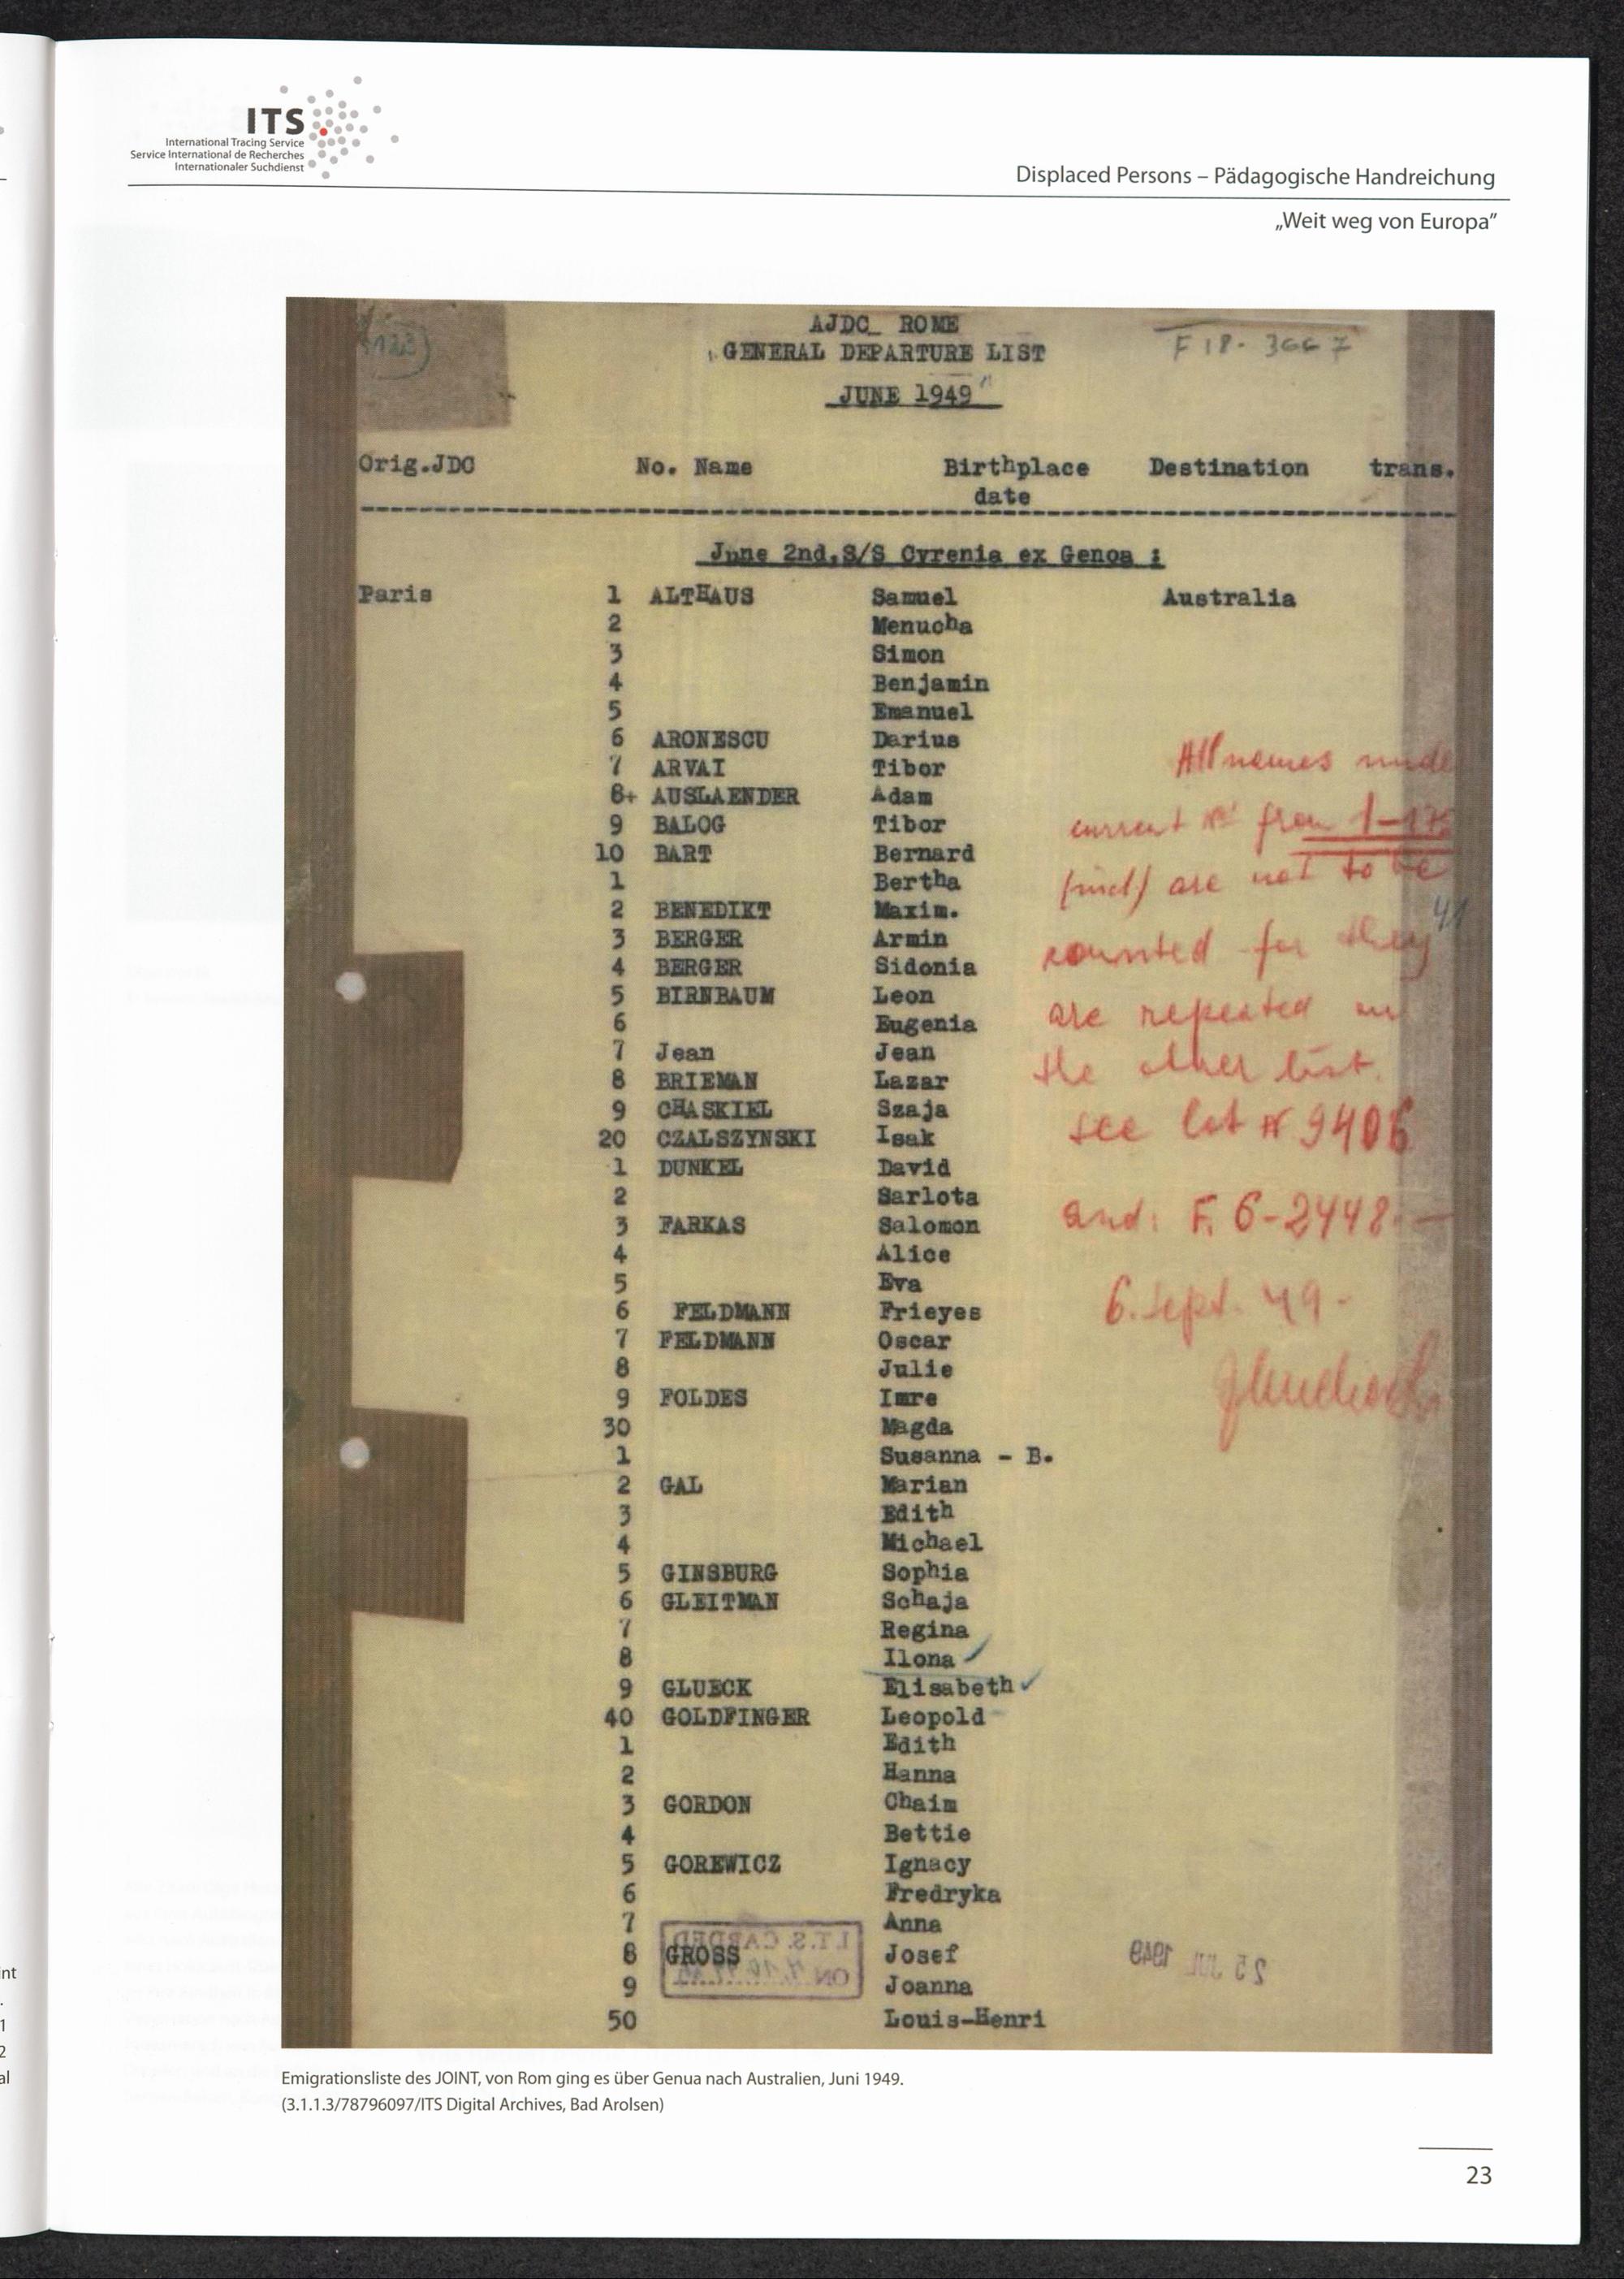 ITS
International Tracing Service
Service International de Recherches
Internationaler Suchdienst
Displaced Persons – Pädagogische Handreichung
„Weit weg von Europa”
AJDC_ ROME
GENERAL DEPARTURE LIST
F 18 - 3667
JUNE 1949
Orig.JDC No. Name Birthplace Destination trans.
date
June 2nd,S/S Cyrenia ex Genoa :
Paris 1 ALTHAUS Samuel Australia
2 Menucha
3 Simon
4 Benjamin
5 Emanuel
6 ARONESCU Darius
7 ARVAI Tibor
8+ AUSLAENDER Adam
9 BALOG Tibor
10 BART Bernard
1 Bertha
2 BENEDIKT Maxim.
3 BERGER Armin
4 BERGER Sidonia
5 BIRNBAUM Leon
6 Eugenia
7 Jean Jean
8 BRIEMAN Lazar
9 CHASKIEL Szaja
20 CZALSZYNSKI Isak
1 DUNKEL David
2 Sarlota
3 FARKAS Salomon
4 Alice
5 Eva
6 FELDMANN Frieyes
7 FELDMANN Oscar
8 Julie
9 FOLDES Imre
30 Magda
1 Susanna - B.
2 GAL Marian
3 Edith
4 Michael
5 GINSBURG Sophia
6 GLEITMAN Schaja
7 Regina
8 Ilona
9 GLUECK Elisabeth
40 GOLDFINGER Leopold
1 Edith
2 Hanna
3 GORDON Chaim
4 Bettie
5 GOREWICZ Ignacy
6 Fredryka
7 Anna
8 GROSS Josef
9 Joanna
50 Louis-Henri
All names
current No from
(incl) are not to be
41
counted for they
are repeated on
the other list.
see list N 9406
and: F. 6-2448.-
6. Sept. 49 -
I.T.S. CARDED
ON
25 JUL 1949
Emigrationsliste des JOINT, von Rom ging es über Genua nach Australien, Juni 1949.
(3.1.1.3/78796097/ITS Digital Archives, Bad Arolsen)
23